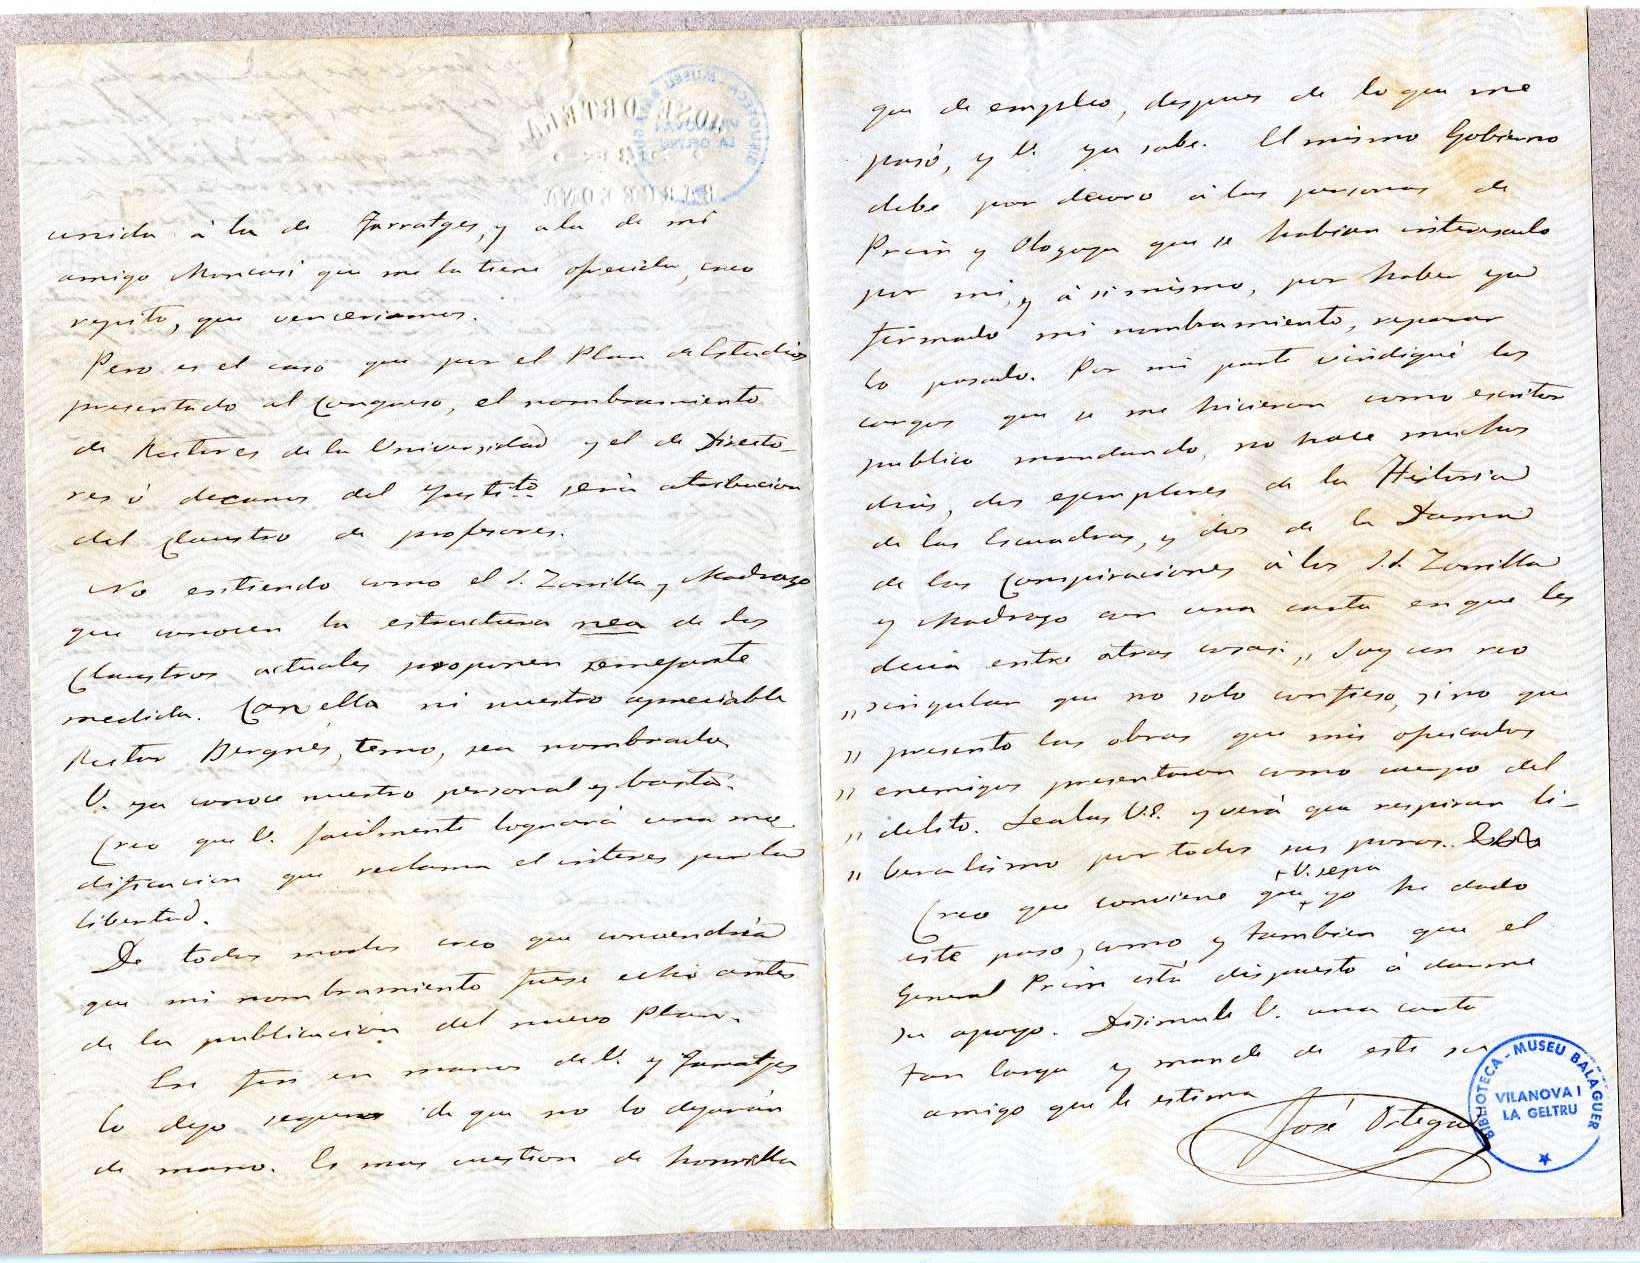 unida á la de Farratges, y a la de mi
amigo Moncasi que me la tiene ofrecida, creo
repito, que venceriamos.
Pero es el caso que por el Plan de Estudios
presentado al Congreso, el nombramiento
de Rectores de la Universidad y el de Directo-
res ó decanos del Instito será atribucion
del Claustro de profesores.
No entiendo como el S. Zorrilla y Madrazo
que conocen la estructura nea de los
Claustros actuales proponen semejante
medida. Con ella ni nuestro apreciable
Rector Bergnes, temo, sea nombrado.
V. ya conoce nuestro personal y basta.
Creo que V. facilmente logrará una mo
dificacion que reclama el interes por la
libertad.
De todos modos creo que convendria
que mi nombramiento fuese echo antes
de la publicacion del nuevo Plan.
En fin en manos de V. y Farratges
lo dejo seguro de que no lo dejarán
de mano. Es mas cuestion de honrilla
que de empleo, despues de lo que me
pasó, y V. ya sabe. El mismo Gobierno
debe por decoro á las personas de
Prim y Olozaga que se habian interesado
por mi, y á si mismo, por haber ya
firmado mi nombramiento, reparar
lo pasado. Por mi parte vindiqué los
cargos que se me hicieron como escritor
publico mandando, no hace muchos
dias, dos ejemplares de la Historia
de las Escuadras, y dos de la Dama
de las Conspiraciones á los S.S. Zorrilla
y Madrazo con una carta en que les
decia entre otras cosas: „Soy un reo
„singular que no solo confieso, sino que
„presento las obras que mis ofuscados
„enemigos presentaron como cuerpo del
„delito. Lealas V.E. y verá que respiran li-
„beralismo por todos sus poros.
Creo que conviene que V. sepa yo he dado
este paso, como y tambien que el
General Prim está dispuesto á darme
su apoyo. Disimule V. una carta
tan larga y mande de este su
amigo que le estima
José Ortega
BIBLIOTECA - MUSEU BALAGUER
VILANOVA I
LA GELTRU